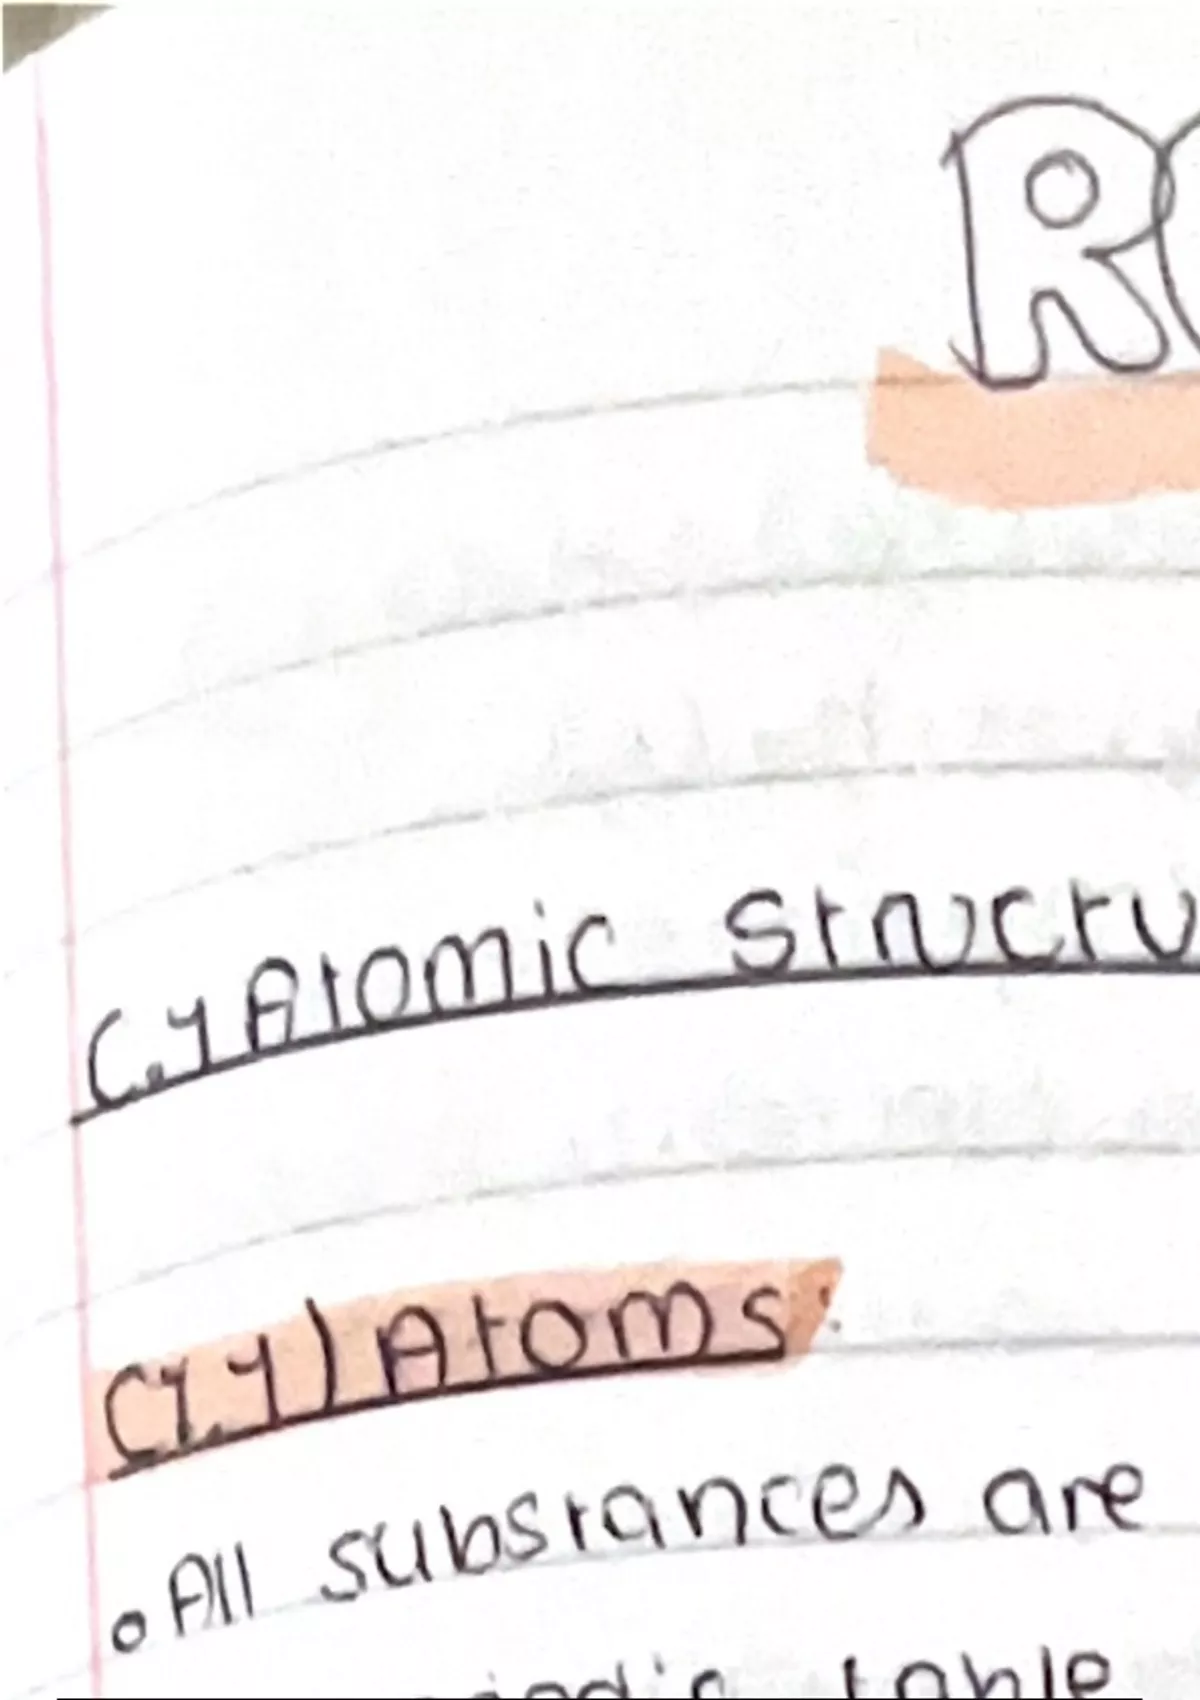 R
C.1 Atomic Structu
C(1.1) Atoms:
• All substances are
table